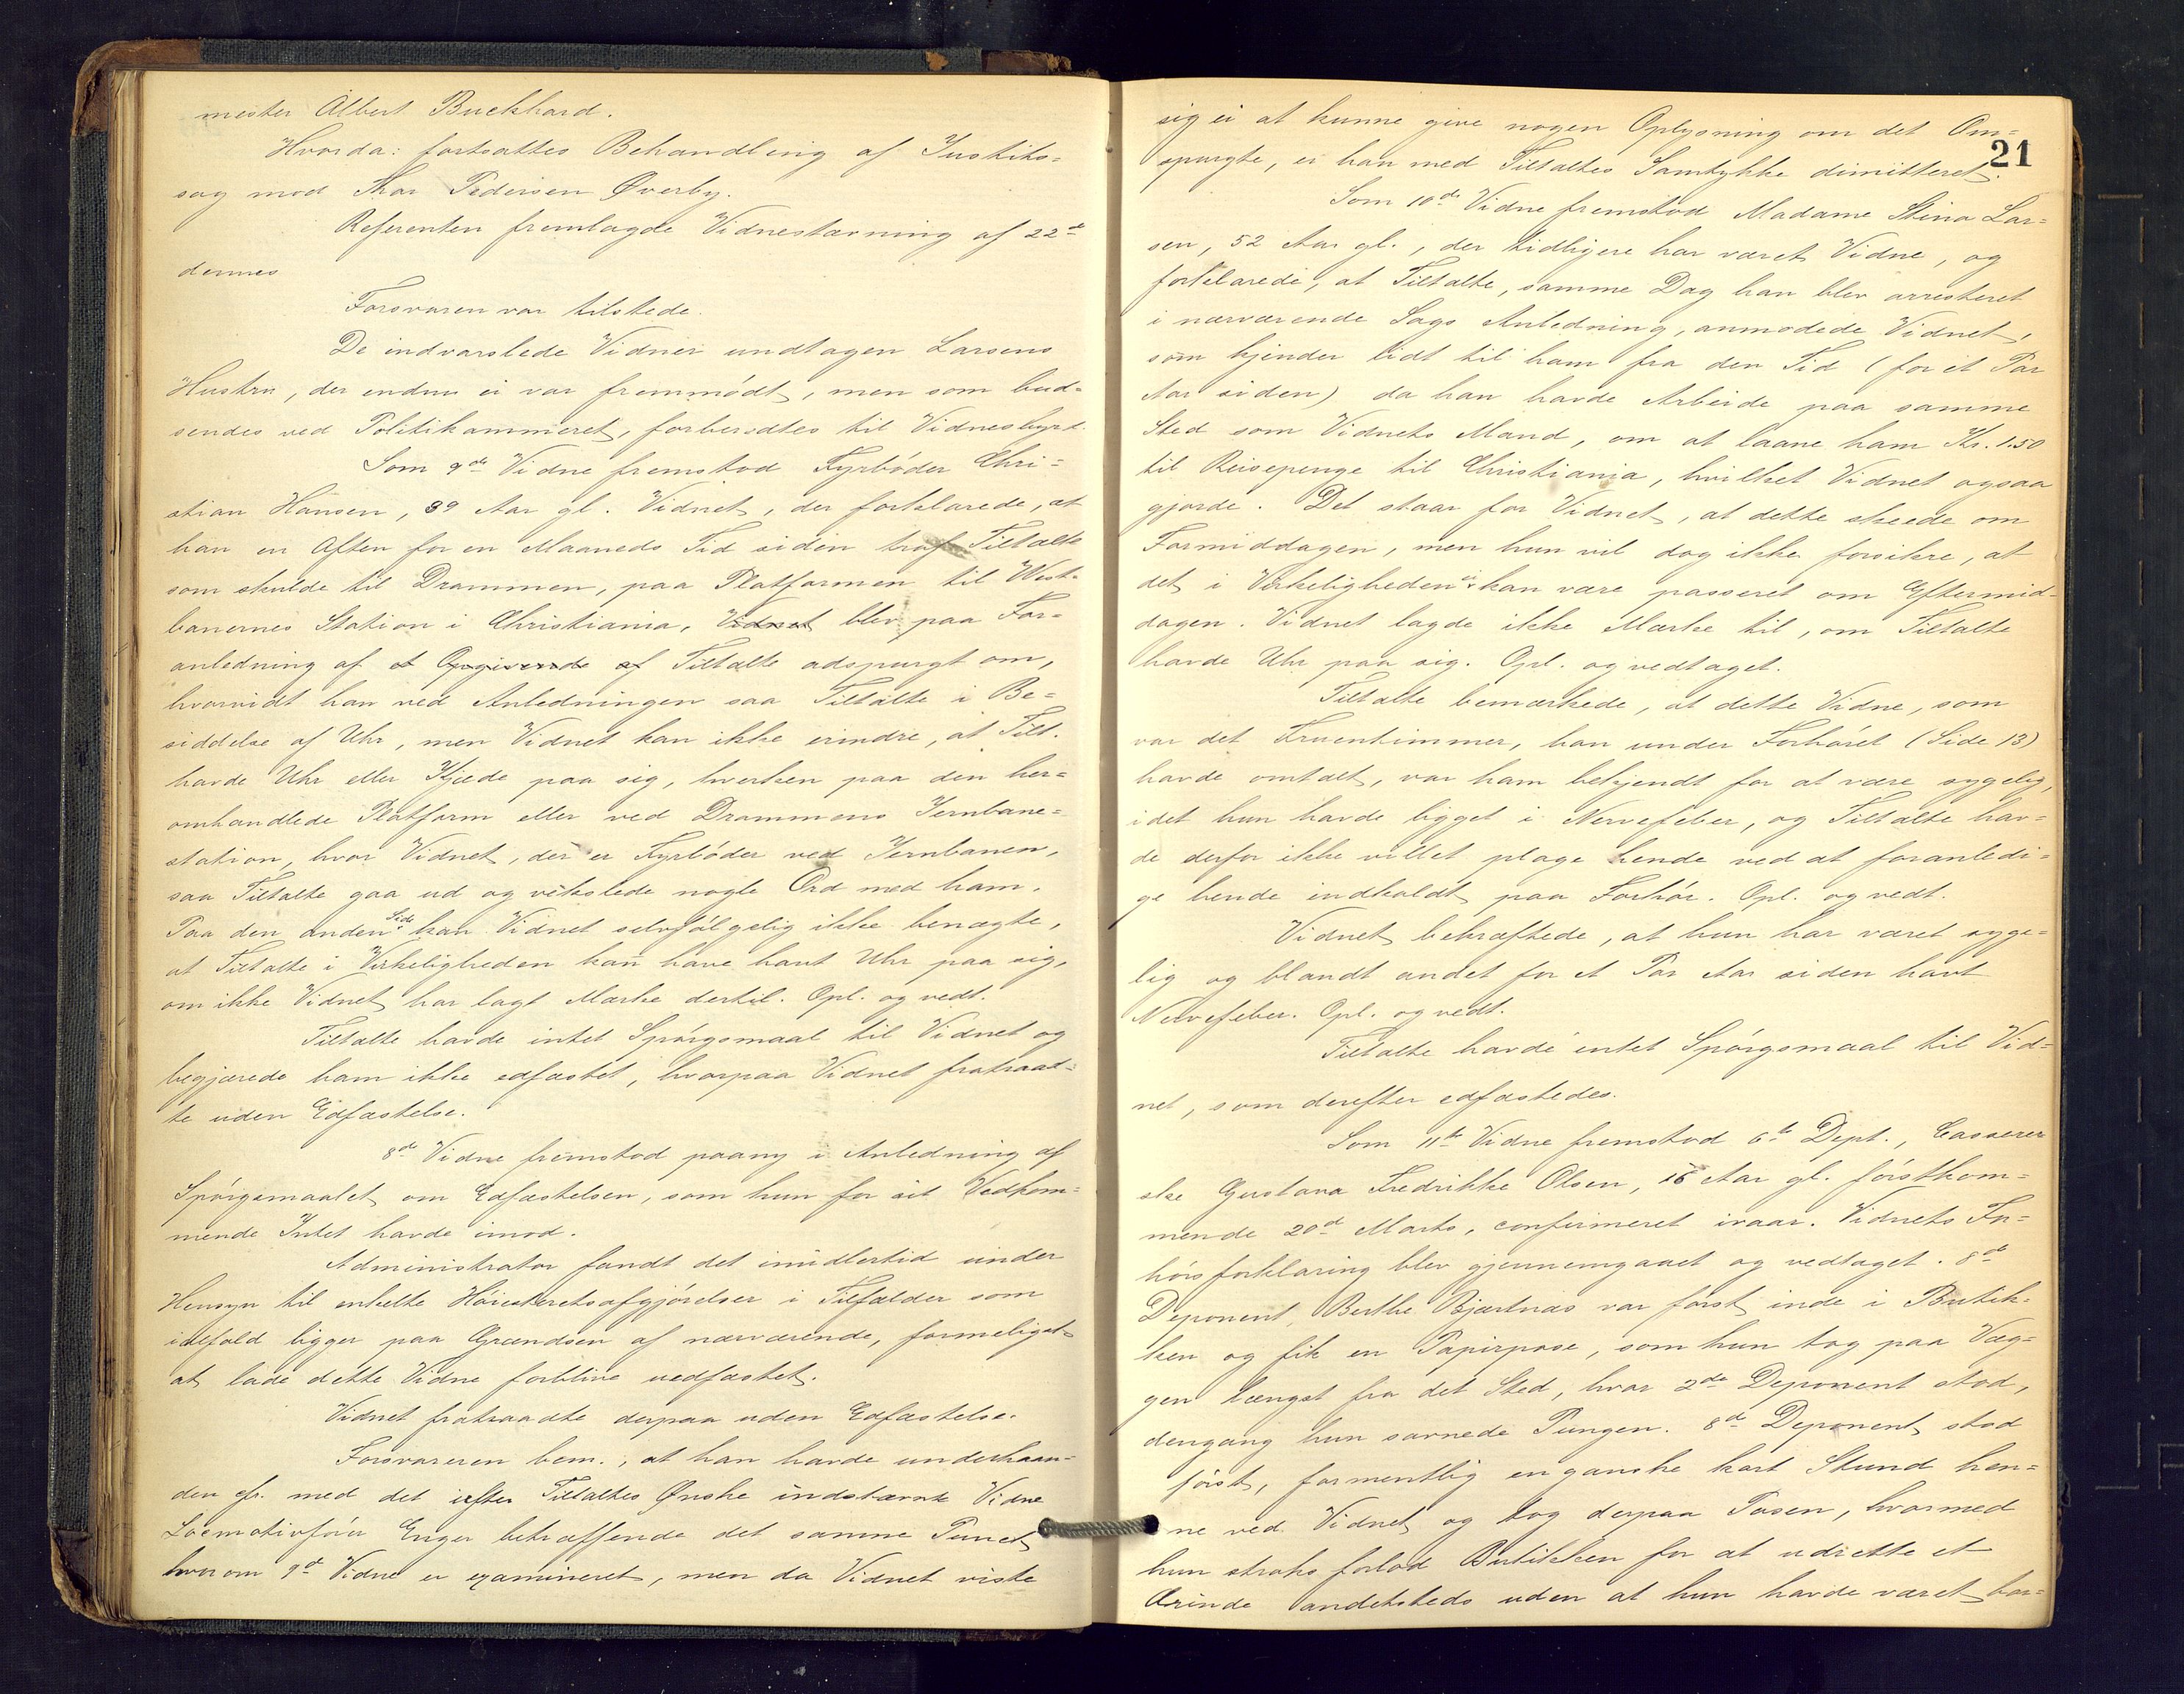 mester Albert Buckhard.
Hvorda: fortsattes Behandling af Justits-
sag mod Thor Pedersen Øverby.
Referenten fremlagde Vidnestævning af 22de
dennes
Forsvaren var tilstede.
De indvarslede Vidner undtagen Larsens
Hustru, der endnu ei var fremmødt, men som bud-
sendes ved Politikammeret, forberedtes til Vidnesbyrd.
Som 9de Vidne fremstod Fyrbøder Chri-
stian Hansen, 39 Aar gl. Vidnet, der forklarede, at
han en Aften for en Maaneds Tid siden traf Tiltalte
som skulde til Drammen, paa Platformen til Vest-
banernes Station i Christiania, Vidnet blev paa For-
anledning af et Opgivende af Tiltalte adspurgt om,
hvorvidt han ved Anledningen saa Tiltalte i Be-
siddelse af Uhr, men Vidnet kan ikke erindre, at Tilt.
havde Uhr eller Kjæde paa sig, hverken paa den her-
omhandlede Platform eller ved Drammens Jernbane-
station, hvor Vidnet, der er Fyrbøder ved Jernbanen,
saa Tiltalte gaa ud og vekslede nogle Ord med ham.
Paa den anden Side kan Vidnet selvfølgelig ikke benægte,
at Tiltalte i Virkeligheden kan have havt Uhr paa sig,
om ikke Vidnet har lagt Mærke dertil. Opl. og vedt.
Tiltalte havde intet Spørgsmaal til Vidnet og
begjærede ham ikke edfæstet, hvorpaa Vidnet fratraad-
te uden Edfæstelse.
8de Vidne fremstod paany i Anledning af
Spørgsmaalet om Edfæstelsen, som hun for sit Vedkom-
mende Intet havde imod.
Administrator fandt det imidlertid under
Hensyn til enkelte Høiesteretsafgjørelser i Tilfælder som
ialfald ligger paa Grændsen af nærværende, formeligst
at lade dette Vidne forblive uedfæstet.
Vidnet fratraadte derpaa uden Edfæstelse.
Forsvareren bem., at han havde underhaan-
den cfr. med det efter Tiltaltes Ønske indstævnte Vidne
Locmotivfører Enger betræffende det samme Punct
hvorom 9de Vidne er examineret, men da Vidnet viste
21
sig ei at kunne give nogen Oplysning om det Om-
spurgte, er han med Tiltaltes Samtykke dimitteret.
Som 10de Vidne fremstod Madame Stina Lar-
sen, 52 Aar gl., der tidligere har været Vidne, og
forklarede, at Tiltalte, samme Dag han blev arresteret
i nærværende Sags Anledning, anmodede Vidnet,
som kjender lidt til ham fra den Tid (for et Par
Aar siden) da han havde Arbeide paa samme
Sted som Vidnets Mand, om at laane ham Kr. 1.50
til Reisepenge til Christiania, hvilket Vidnet ogsaa
gjorde. Det staar for Vidnet, at dette skeede om
Formiddagen, men hun vil dog ikke forsikre, at
det i Virkeligheden ei kan være passeret om Eftermid-
dagen. Vidnet lagde ikke Mærke til, om Tiltalte
havde Uhr paa sig. Opl. og vedtaget.
Tiltalte bemærkede, at dette Vidne, som
var det Fruentimmer, han under Forhøret (Side 13)
havde omtalt, var ham bekjendt for at være sygelig,
idet hun havde ligget i Nervefeber, og Tiltalte hav-
de derfor ikke villet plage hende ved at foranledi-
ge hende indkaldt paa Forhør. Opl. og vedt.
Vidnet bekræftede, at hun har været syge-
lig og blandt andet for et Par Aar siden havt
Nervefeber. Opl. og vedt.
Tiltalte havde intet Spørgsmaal til Vid-
net, som derefter edfæstedes.
Som 11te Vidne fremstod 6te Dept., Casserer
ske Gustava Fredrikke Olsen, 16 Aar gl. førstkom-
mende 20de Marts, confirmeret ivaar. Vidnets For-
hørsforklaring blev gjennemgaaet og vedtaget. 8de
Deponent, Berthe Bjærtnæs var først inde i Butik-
ken og fik en Papirpose, som hun tog paa Væg-
gen længst fra det Sted, hvor 2de Deponent stod,
dengang hun savnede Pungen. 8de Deponent stod
først, formentlig en ganske kort Stund hen-
ne ved Vidnet og tog derpaa Posen, hvormed
hun straks forlod Butikken for at udrette et
Ærinde andetsteds uden at hun havde været bor-